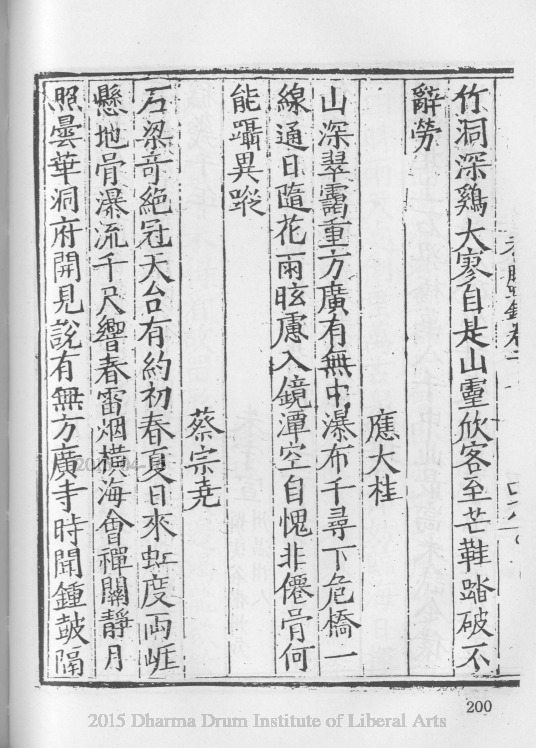 竹洞深鷄犬寥自是山靈欣客至芒鞋踏破不
辭勞
應大桂
山深翠靄重方廣有無中瀑布千尋下危橋一
線通日隨花雨眩慮入鏡潭空自愧非僊骨何
能躡異蹤
蔡宗堯
石梁奇絕冠天台有約初春夏日來虹度兩崖
懸地骨瀑流千尺響春雷烟橫海會禪關靜月
照曇華洞府開見說有無方廣寺時聞鍾鼓隔
200
2015 Dharma Drum Institute of Liberal Arts